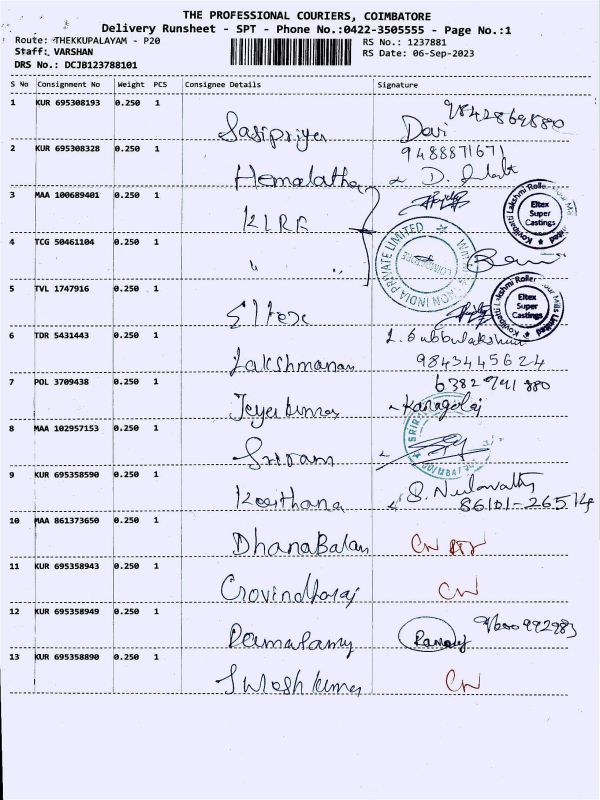 THE PROFESSIONAL COURIERS, COIMBATORE
Delivery Runsheet - SPT - Phone No.:0422-3505555 - Page No.:1
Route: THEKKUPALAYAM - P20
RS No.: 1237881
Staff: VARSHAN
RS Date: 06-Sep-2023
DRS No.: DCJB123788101
S No Consignment No Weight PCS Consignee Details Signature
1 KUR 695308193 0.250 1 Sasipriya Devi 9842869880
2 KUR 695308328 0.250 1 Hemalatha 9488871671
3 MAA 100689401 0.250 1 KLRF
Kovilpatti Lakshmi Roller Flour Mills Limited
Eltex Super Castings
4 TCG 50461104 0.250 1 " "
INDIA PRIVATE LIMITED
COIMBATORE
5 TVL 1747916 0.250 1 Eltex
Kovilpatti Lakshmi Roller Flour Mills Limited
Eltex Super Castings
6 TDR 5431443 0.250 1 Lakshmanan L. Subbulakshmi 9843445624
7 POL 3709438 0.250 1 Jeyakumar Kanagaraj
8 MAA 102957153 0.250 1 Sriram
9 KUR 695358590 0.250 1 Keerthana 86101-26514
10 MAA 861373650 0.250 1 DhanaBalan CN
11 KUR 695358943 0.250 1 Govindharaj CN
12 KUR 695358949 0.250 1 Ramasamy Ramasy
13 KUR 695358890 0.250 1 Suresh kumar CN